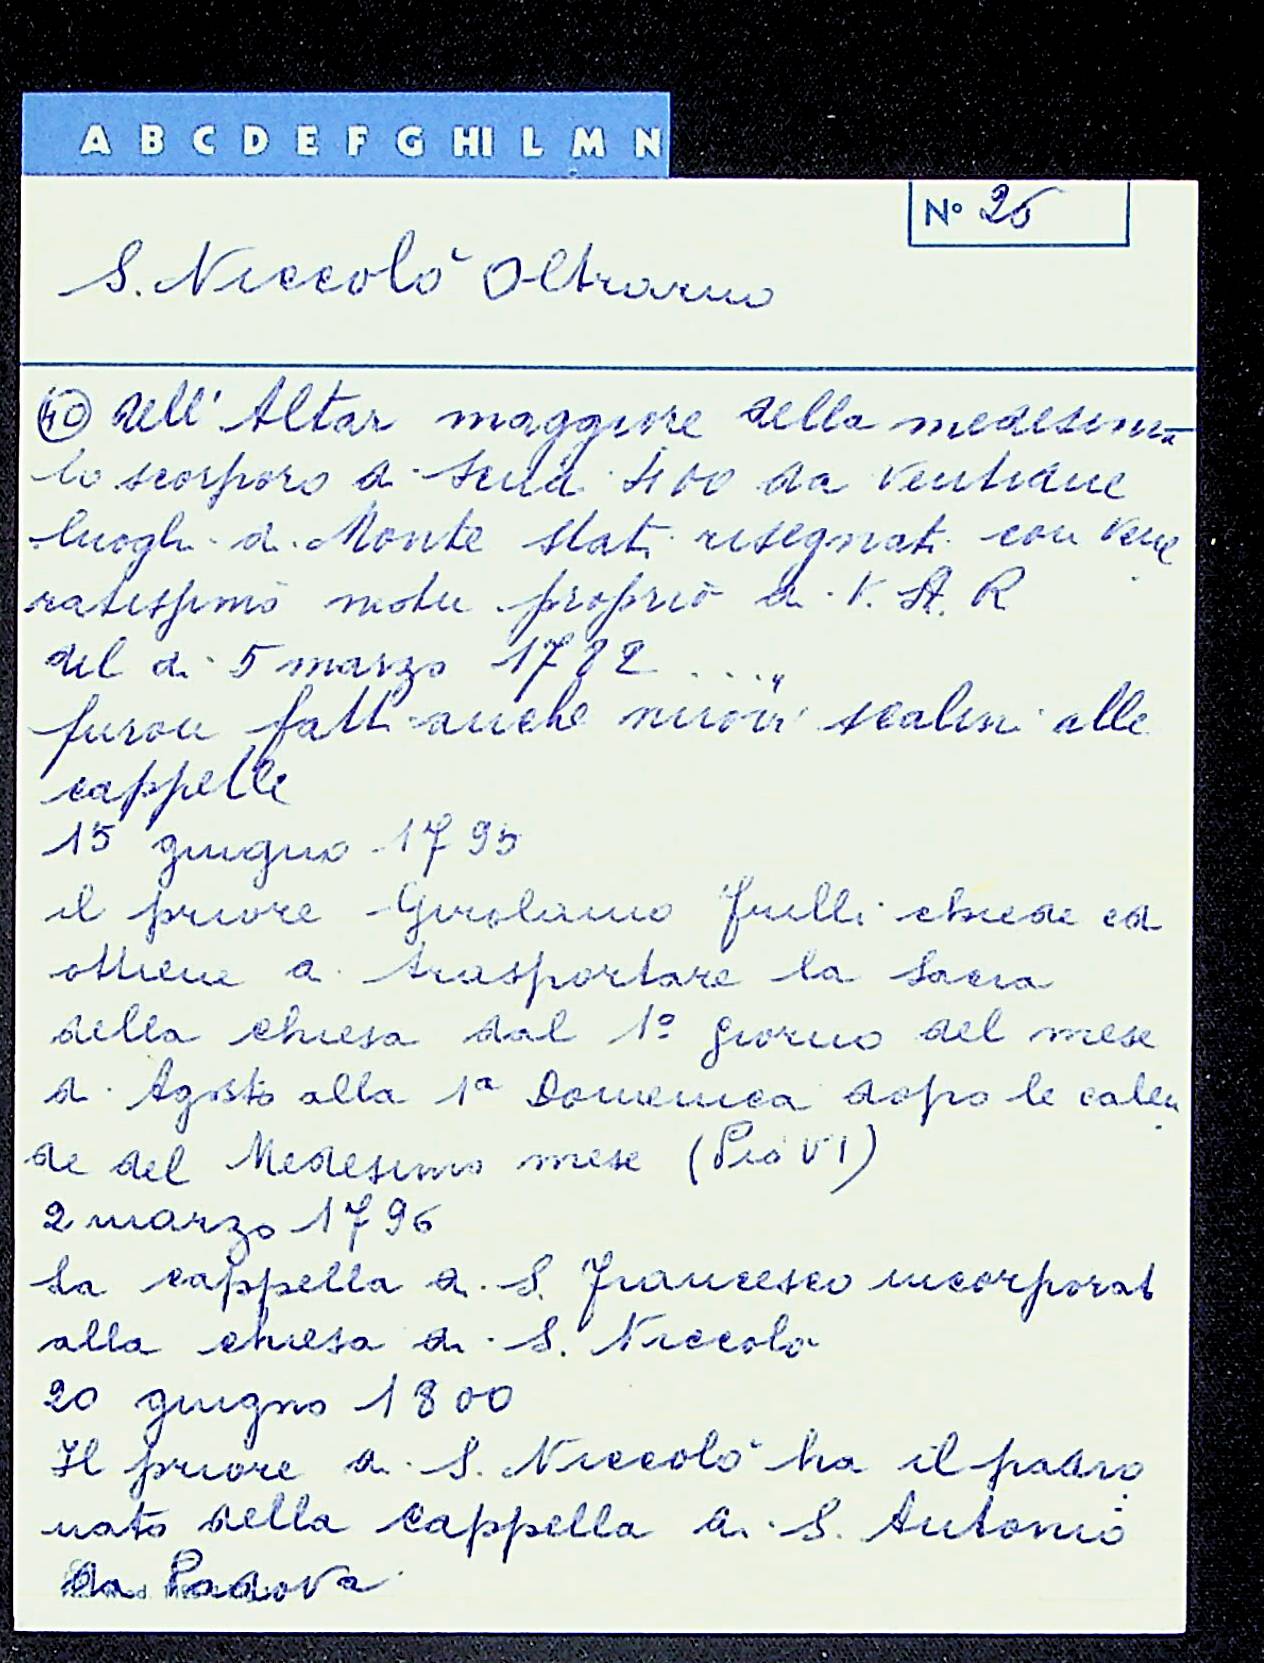 A B C D E F G HI L M N
N° 26
S. Niccolò Oltrarno
40 dell'Altar maggiore della medesima
lo scorporo di Scudi 400 da ventidue
luoghi di Monte stati risegnati con vene
ratissimo motu proprio di V. A. R
del di 5 marzo 1782 ...."
furon fatti anche nuovi scalini alle
cappelle
15 giugno 1795
il priore Girolamo Frilli chiede ed
ottiene di trasportare la Sacra
della chiesa dal 1° giorno del mese
di Agosto alla 1a Domenica dopo le calen
de del Medesimo mese (Pio VI)
2 marzo 1796
La cappella di S. Francesco incorporat
alla chiesa di S. Niccolo
20 giugno 1800
Il priore di S. Niccolò ha il padro
nato della cappella di S. Antonio
da Padova